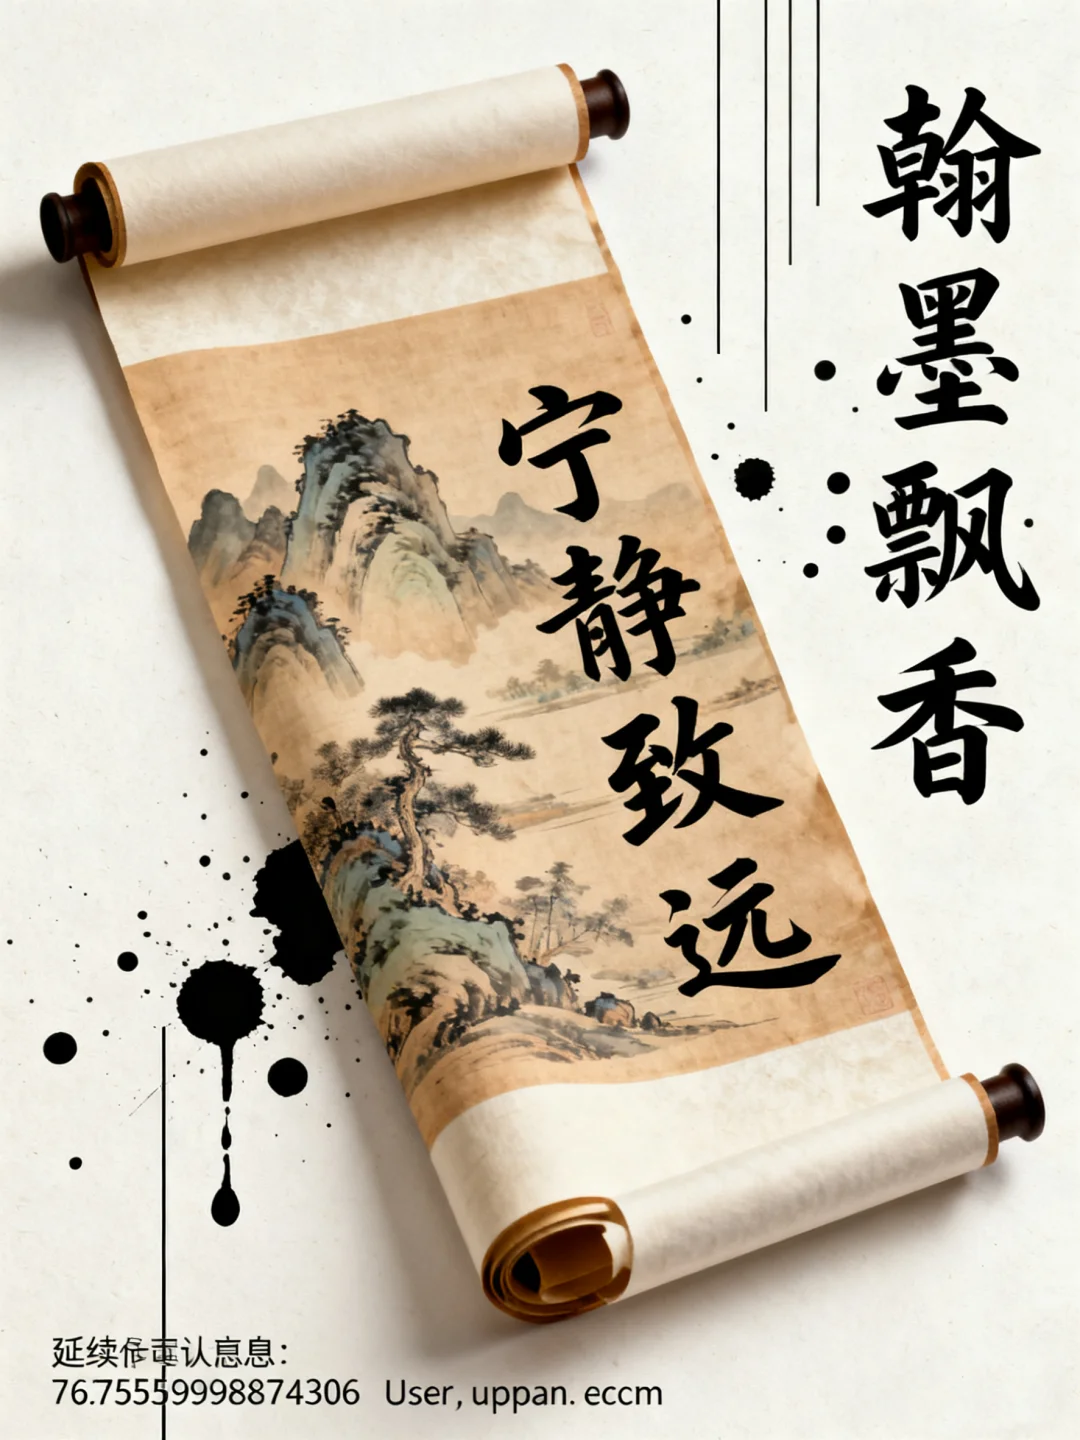 翰墨飘香
宁静致远
延续 认息息：
76.75559998874306 User, uppan. eccm